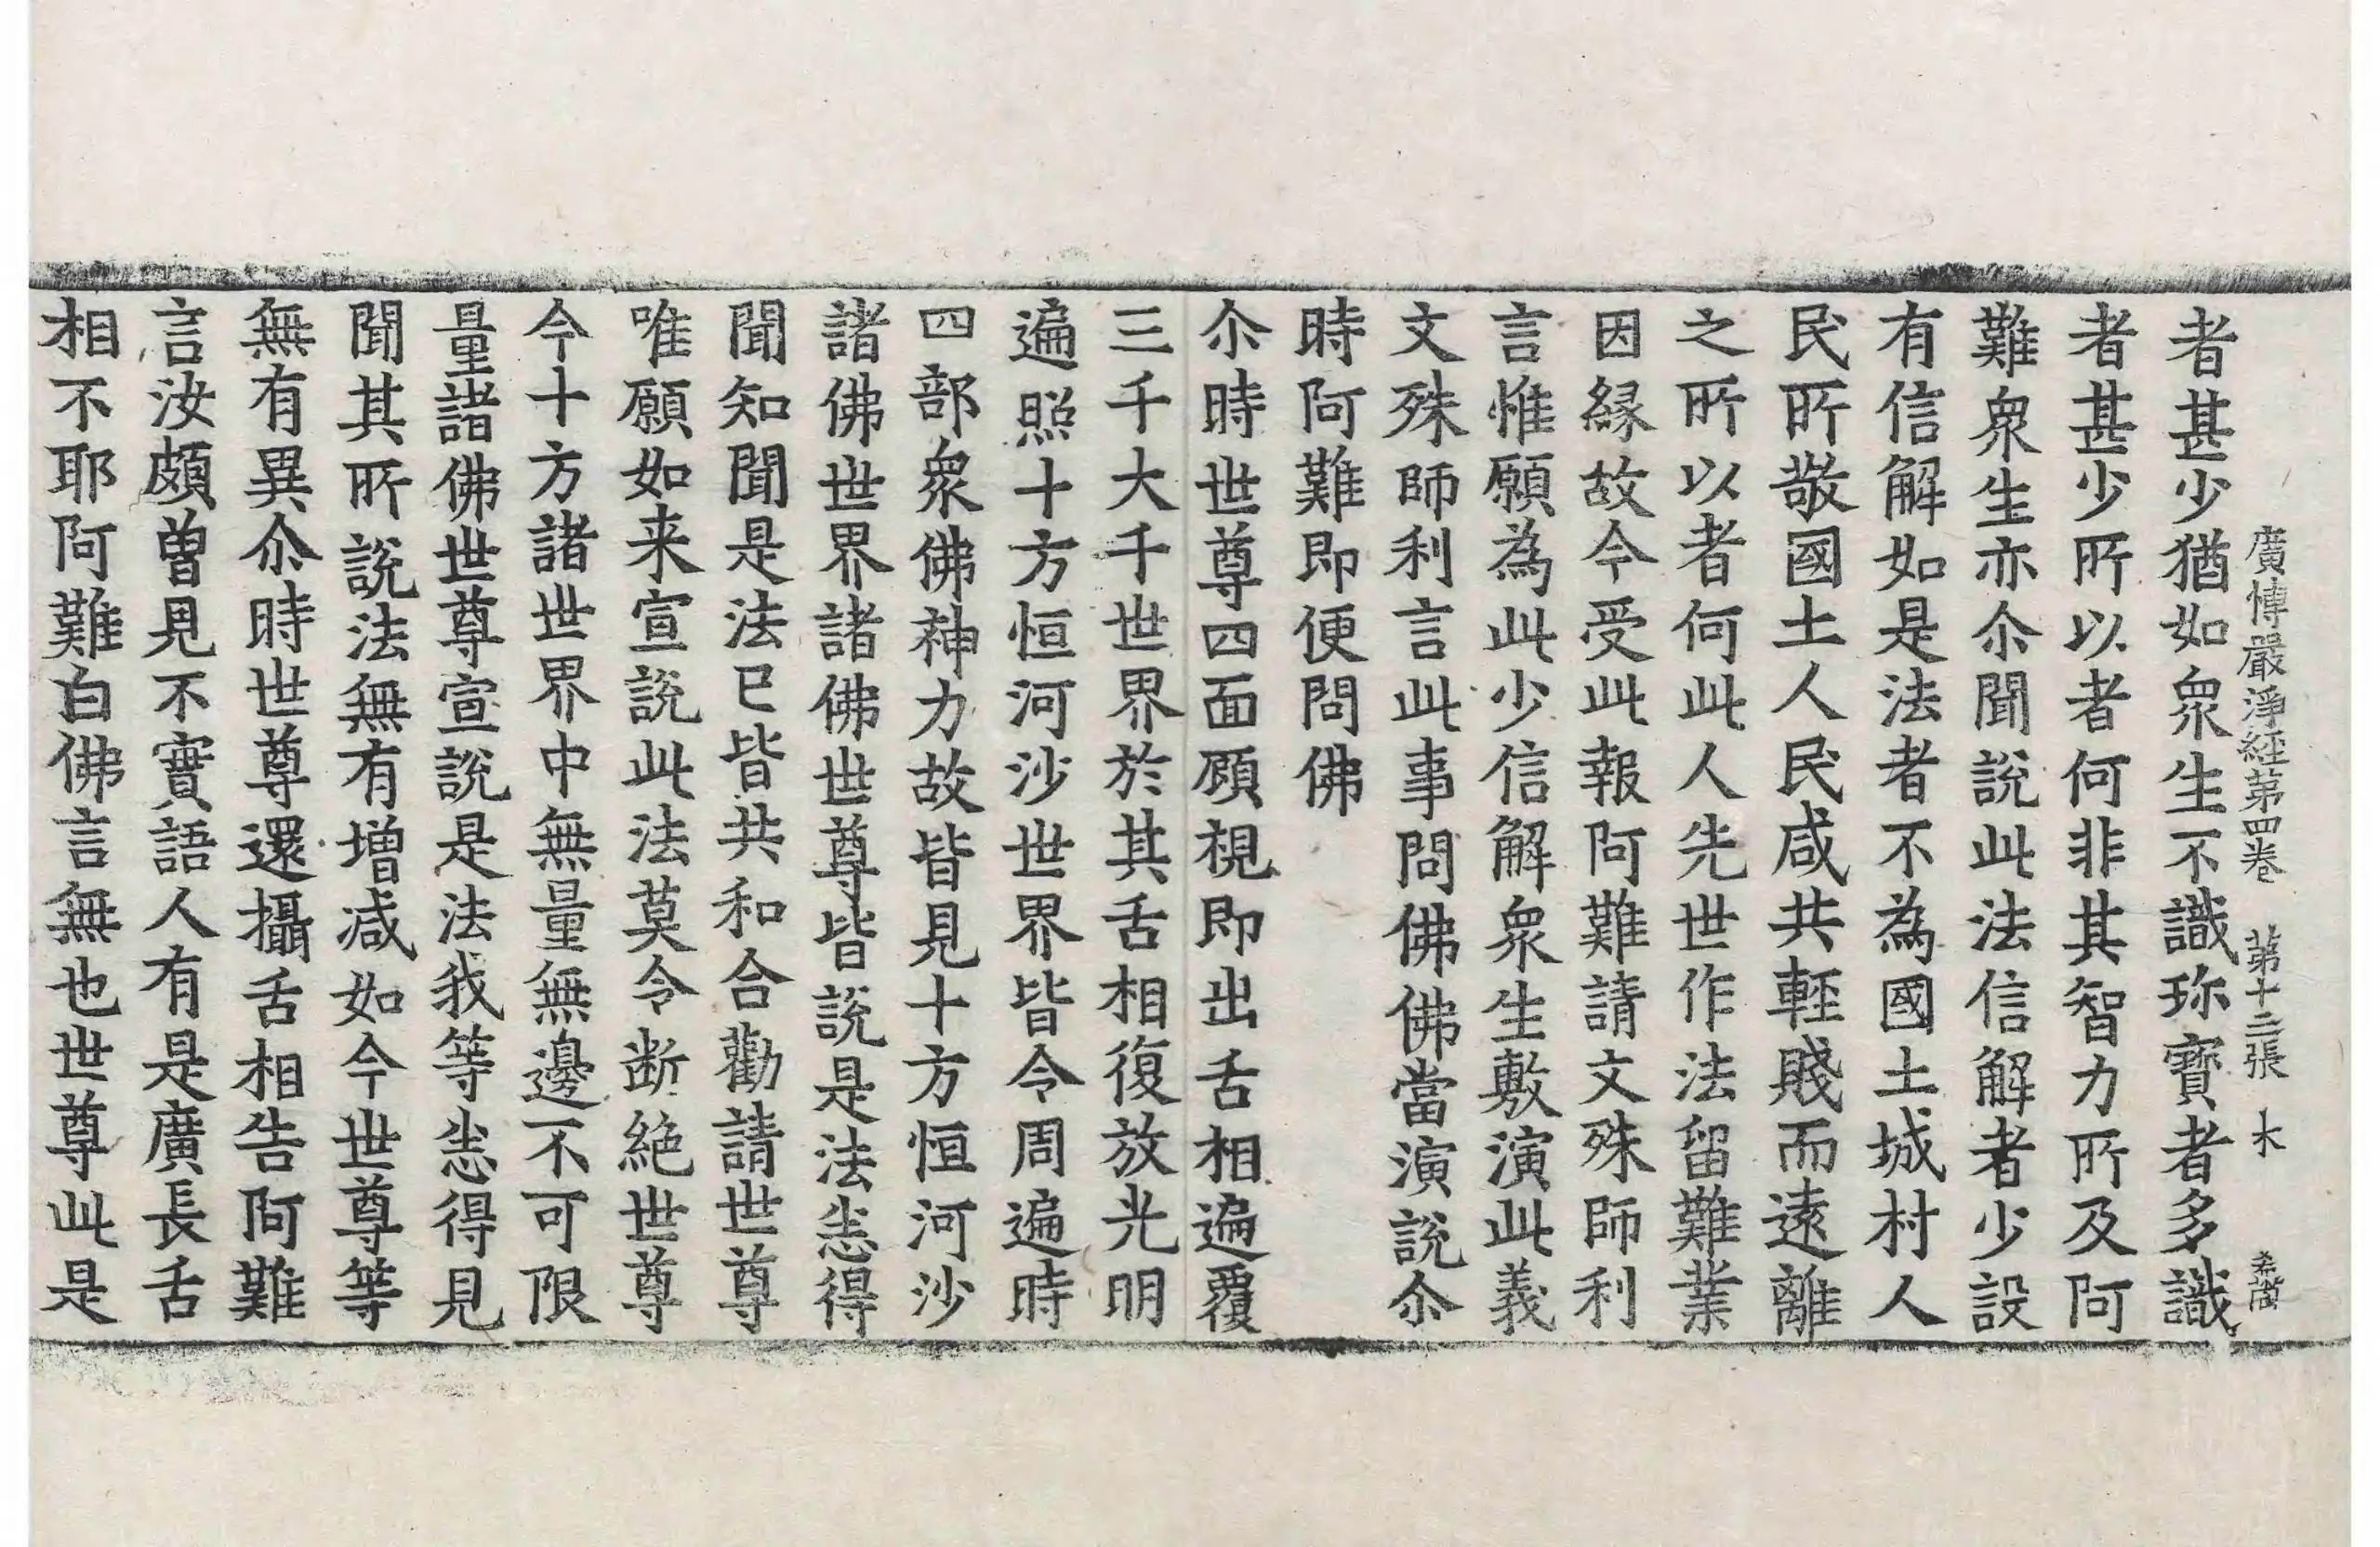 廣博嚴淨經第四卷　第十二張　木
者甚少猶如衆生不識珎寶者多識
者甚少所以者何非其智力所及阿
難衆生亦尒聞說此法信解者少設
有信解如是法者不為國土城村人
民所敬國土人民咸共輕賤而遠離
之所以者何此人先世作法留難業
因緣故今受此報阿難請文殊師利
言惟願為此少信解衆生敷演此義
文殊師利言此事問佛佛當演說尒
時阿難即便問佛
尒時世尊四面顧視即出舌相遍覆
三千大千世界於其舌相復放光明
遍照十方恒河沙世界皆令周遍時
四部衆佛神力故皆見十方恒河沙
諸佛世界諸佛世尊皆說是法悉得
聞知聞是法已皆共和合勸請世尊
唯願如来宣說此法莫令断絶世尊
今十方諸世界中無量無邊不可限
量諸佛世尊宣說是法我等悉得見
聞其所說法無有增减如今世尊等
無有異尒時世尊還攝舌相告阿難
言汝頗曾見不實語人有是廣長舌
相不耶阿難白佛言無也世尊此是